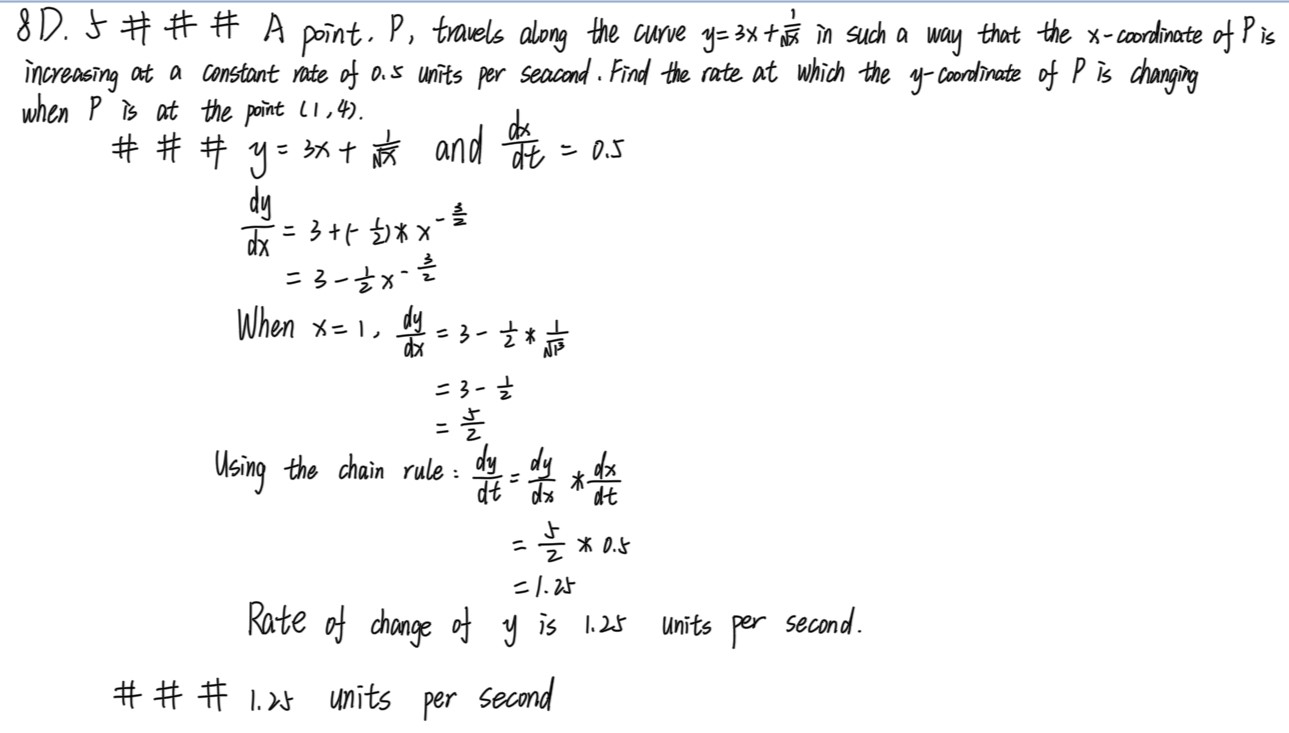 8D. 5 # # # A point, P, travels along the curve y = 3x + 1/√x in such a way that the x-coordinate of P is
increasing at a constant rate of 0.5 units per seacond. Find the rate at which the y-coordinate of P is changing
when P is at the point (1,4).
# # # y = 3x + 1/√x and dx/dt = 0.5
dy/dx = 3 + (- 1/2) * x^(-3/2)
= 3 - 1/2 x^(-3/2)
When x = 1, dy/dx = 3 - 1/2 * 1/√1³
= 3 - 1/2
= 5/2
Using the chain rule: dy/dt = dy/dx * dx/dt
= 5/2 * 0.5
= 1.25
Rate of change of y is 1.25 units per second.
# # # 1.25 units per second